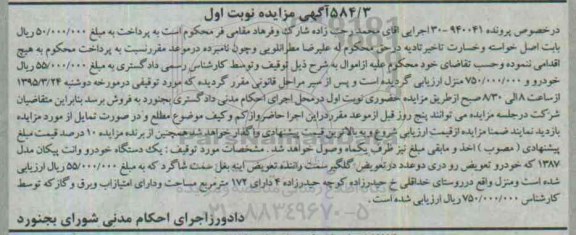 ۵۸۴/۳آگهی مزایده نوبت اول
درخصوص پرونده ۹۴۰۰۴۱-۳۰ اجرایی آقای محمد رجب زاده شارک وفرهاد مقامی فر محکوم است به پرداخت به مبلغ ۵۰/۰۰۰/۰۰۰ ریال
بابت اصل خواسته و خسارت تاخیرتادیه در حق محکوم له علیرضا مطرانلویی وچون نامبرده درموعد مقررنسبت به پرداخت محکوم به هیچ
اقدامی ننموده وحسب تقاضای خود محکوم علیه ازاموال به شرح ذیل توقیف وتوسط کارشناس رسمی دادگستری به مبلغ ۵۵/۰۰۰/۰۰۰ ریال
خودرو و ۷۵۰/۰۰۰/۰۰۰ منزل ارزیابی گردیده است و پس از سیر مراحل قانونی مقرر گردیده که مورد توقیفی درمورخه دوشنبه ۱۳۹۵/۳/۲۴
ازساعت ۸ الی ۸/۳۰ صبح ازطریق مزایده حضوری نوبت اول درمحل اجرای احکام مدنی دادگستری بجنورد به فروش برسد بنابراین متقاضیان
شرکت درجلسه مزایده می توانند پنج روز قبل ازموعد مقرردراین اجرا حاضر وازکم وکیف موضوع مطلع و در صورت تمایل از مورد مزایده
بازدید نمایند ضمنا مزایده ازقیمت ارزیابی شروع و به بالاترین قیمت پیشنهادی واگذار خواهد شد همچنین از برنده مزایده ۱۰ درصد قیمت مبلغ
پیشنهادی ( مصوب ) اخذ و مابقی مبلغ نیز ظرف یکماه وصول خواهد شد . مشخصات مورد توقیف : یک دستگاه خودرو وانت پیکان مدل
۱۳۸۷ که خودرو تعویض رو دری دوعدد درتعویض گلگیر سمت راننده تعویض آینه بغل سمت شاگرد که به مبلغ ۵۵/۰۰۰/۰۰۰ ریال ارزیابی
شده است ومنزل واقع درروستای خداقلی خ حیدرزاده کوچه حیدرزاده ۴ دارای ۱۷۲ مترمربع مساحت ودارای امتیازاب وبرق وگاز که توسط
کارشناس ۷۵۰/۰۰۰/۰۰۰ ریال ارزیابی شده است.
۰۲۱-۸۸۳۴۹۶۷۰-۵
دادورز اجرای احکام مدنی شورای بجنورد